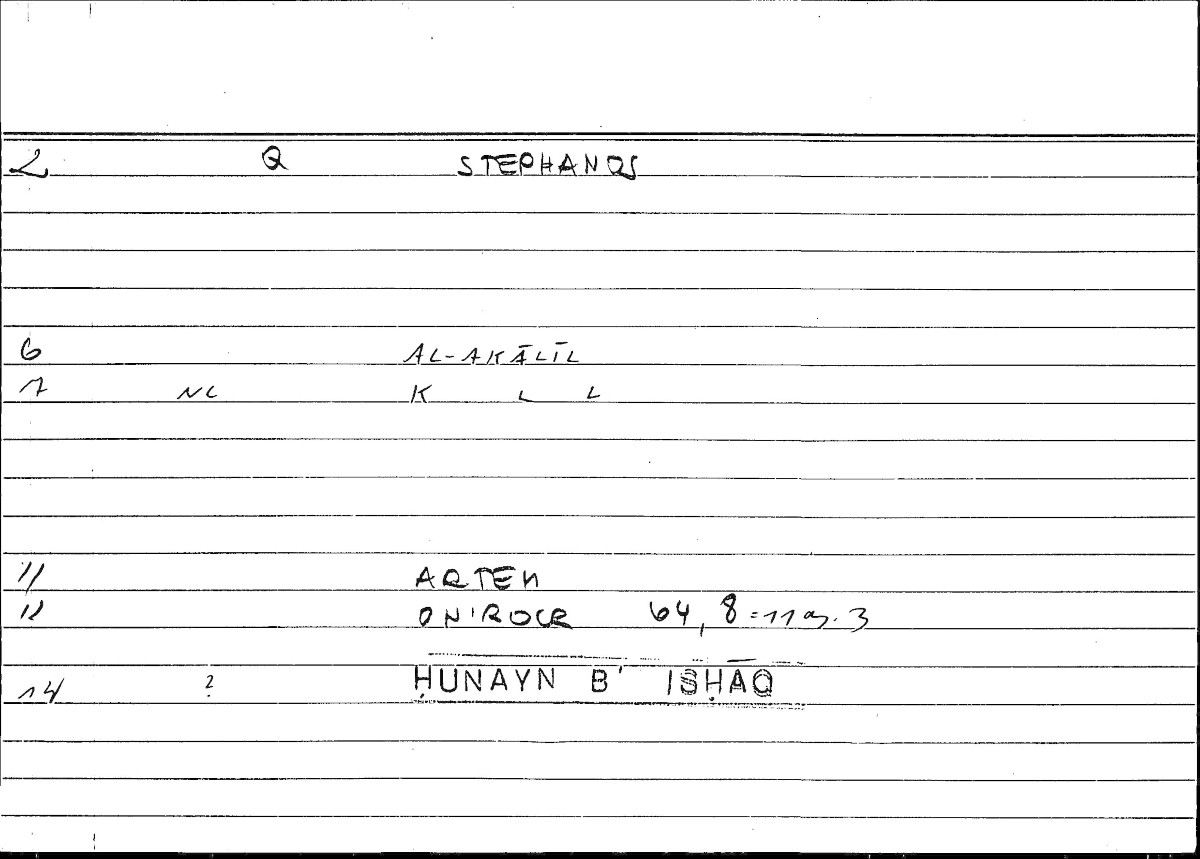 2 Q STEPHANOS
6 AL-AKĀLĪL
7 NL K L L
11 ARTEM
12 ONIROCR 64, 8 = 11 3
14 ? ḤUNAYN B' ISḤĀQ